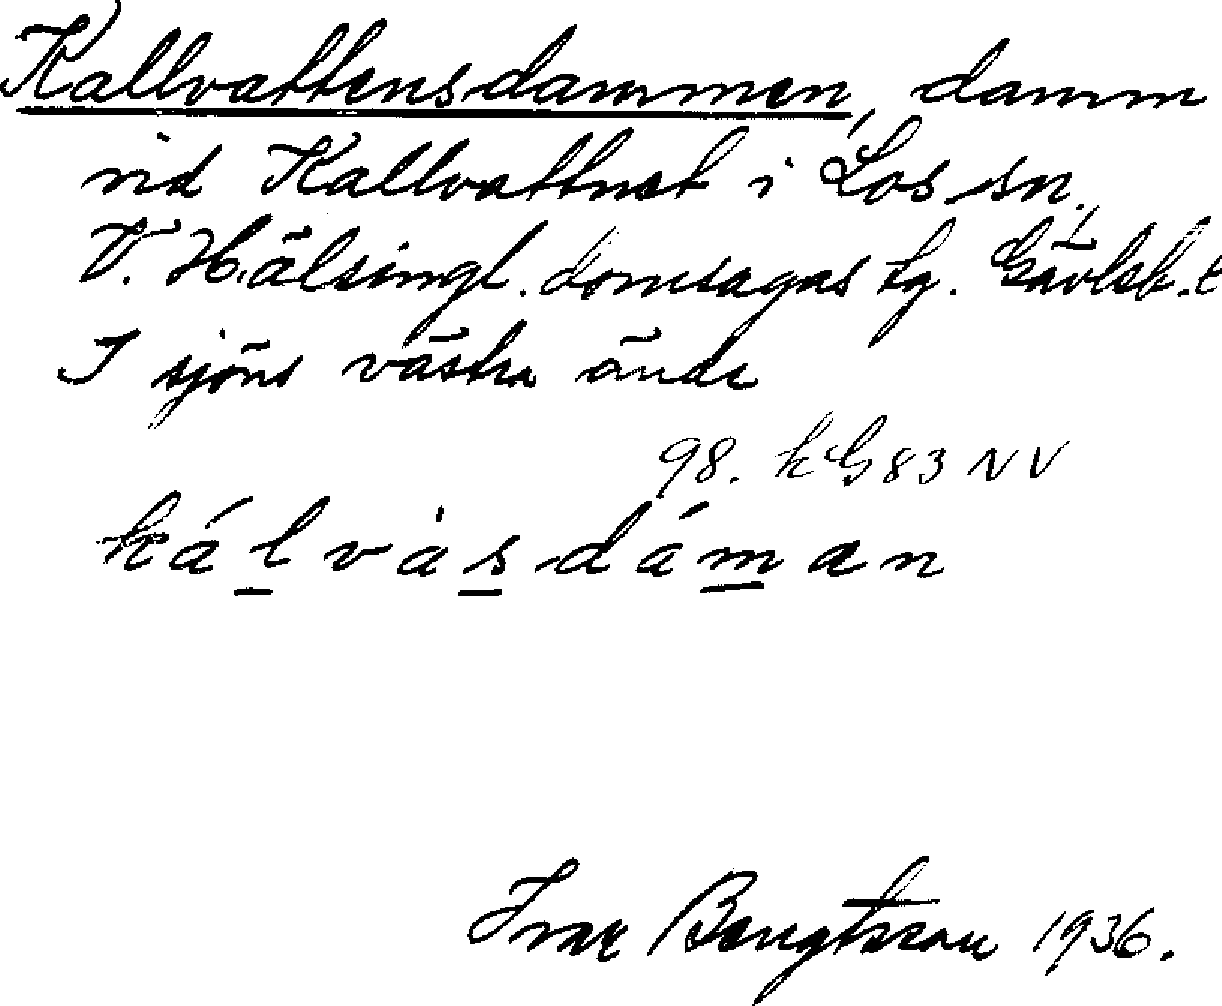 Kallvattensdammen, damm
vid Kallvattnet i Los sn,
V. Hälsingl. domsagas tg. Gävleb. l
I sjöns västra ände
98. kG 83 NV
kálvàsdáman
Ivar Bengtsson 1936.